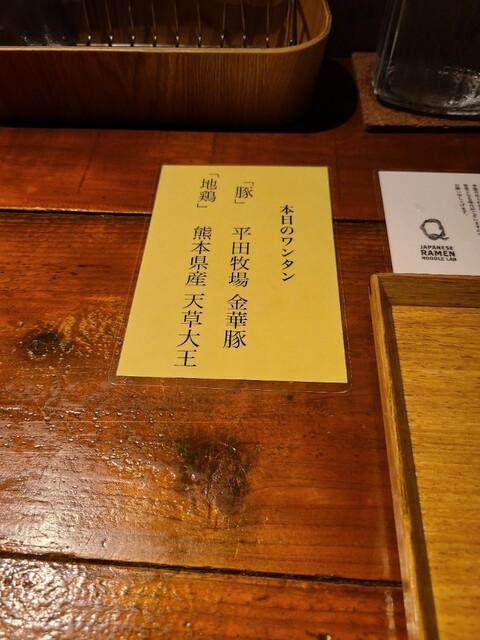 本日のワンタン
「豚」 平田牧場 金華豚
「地鶏」 熊本県産 天草大王
Q
JAPANESE
RAMEN
NOODLE LAB